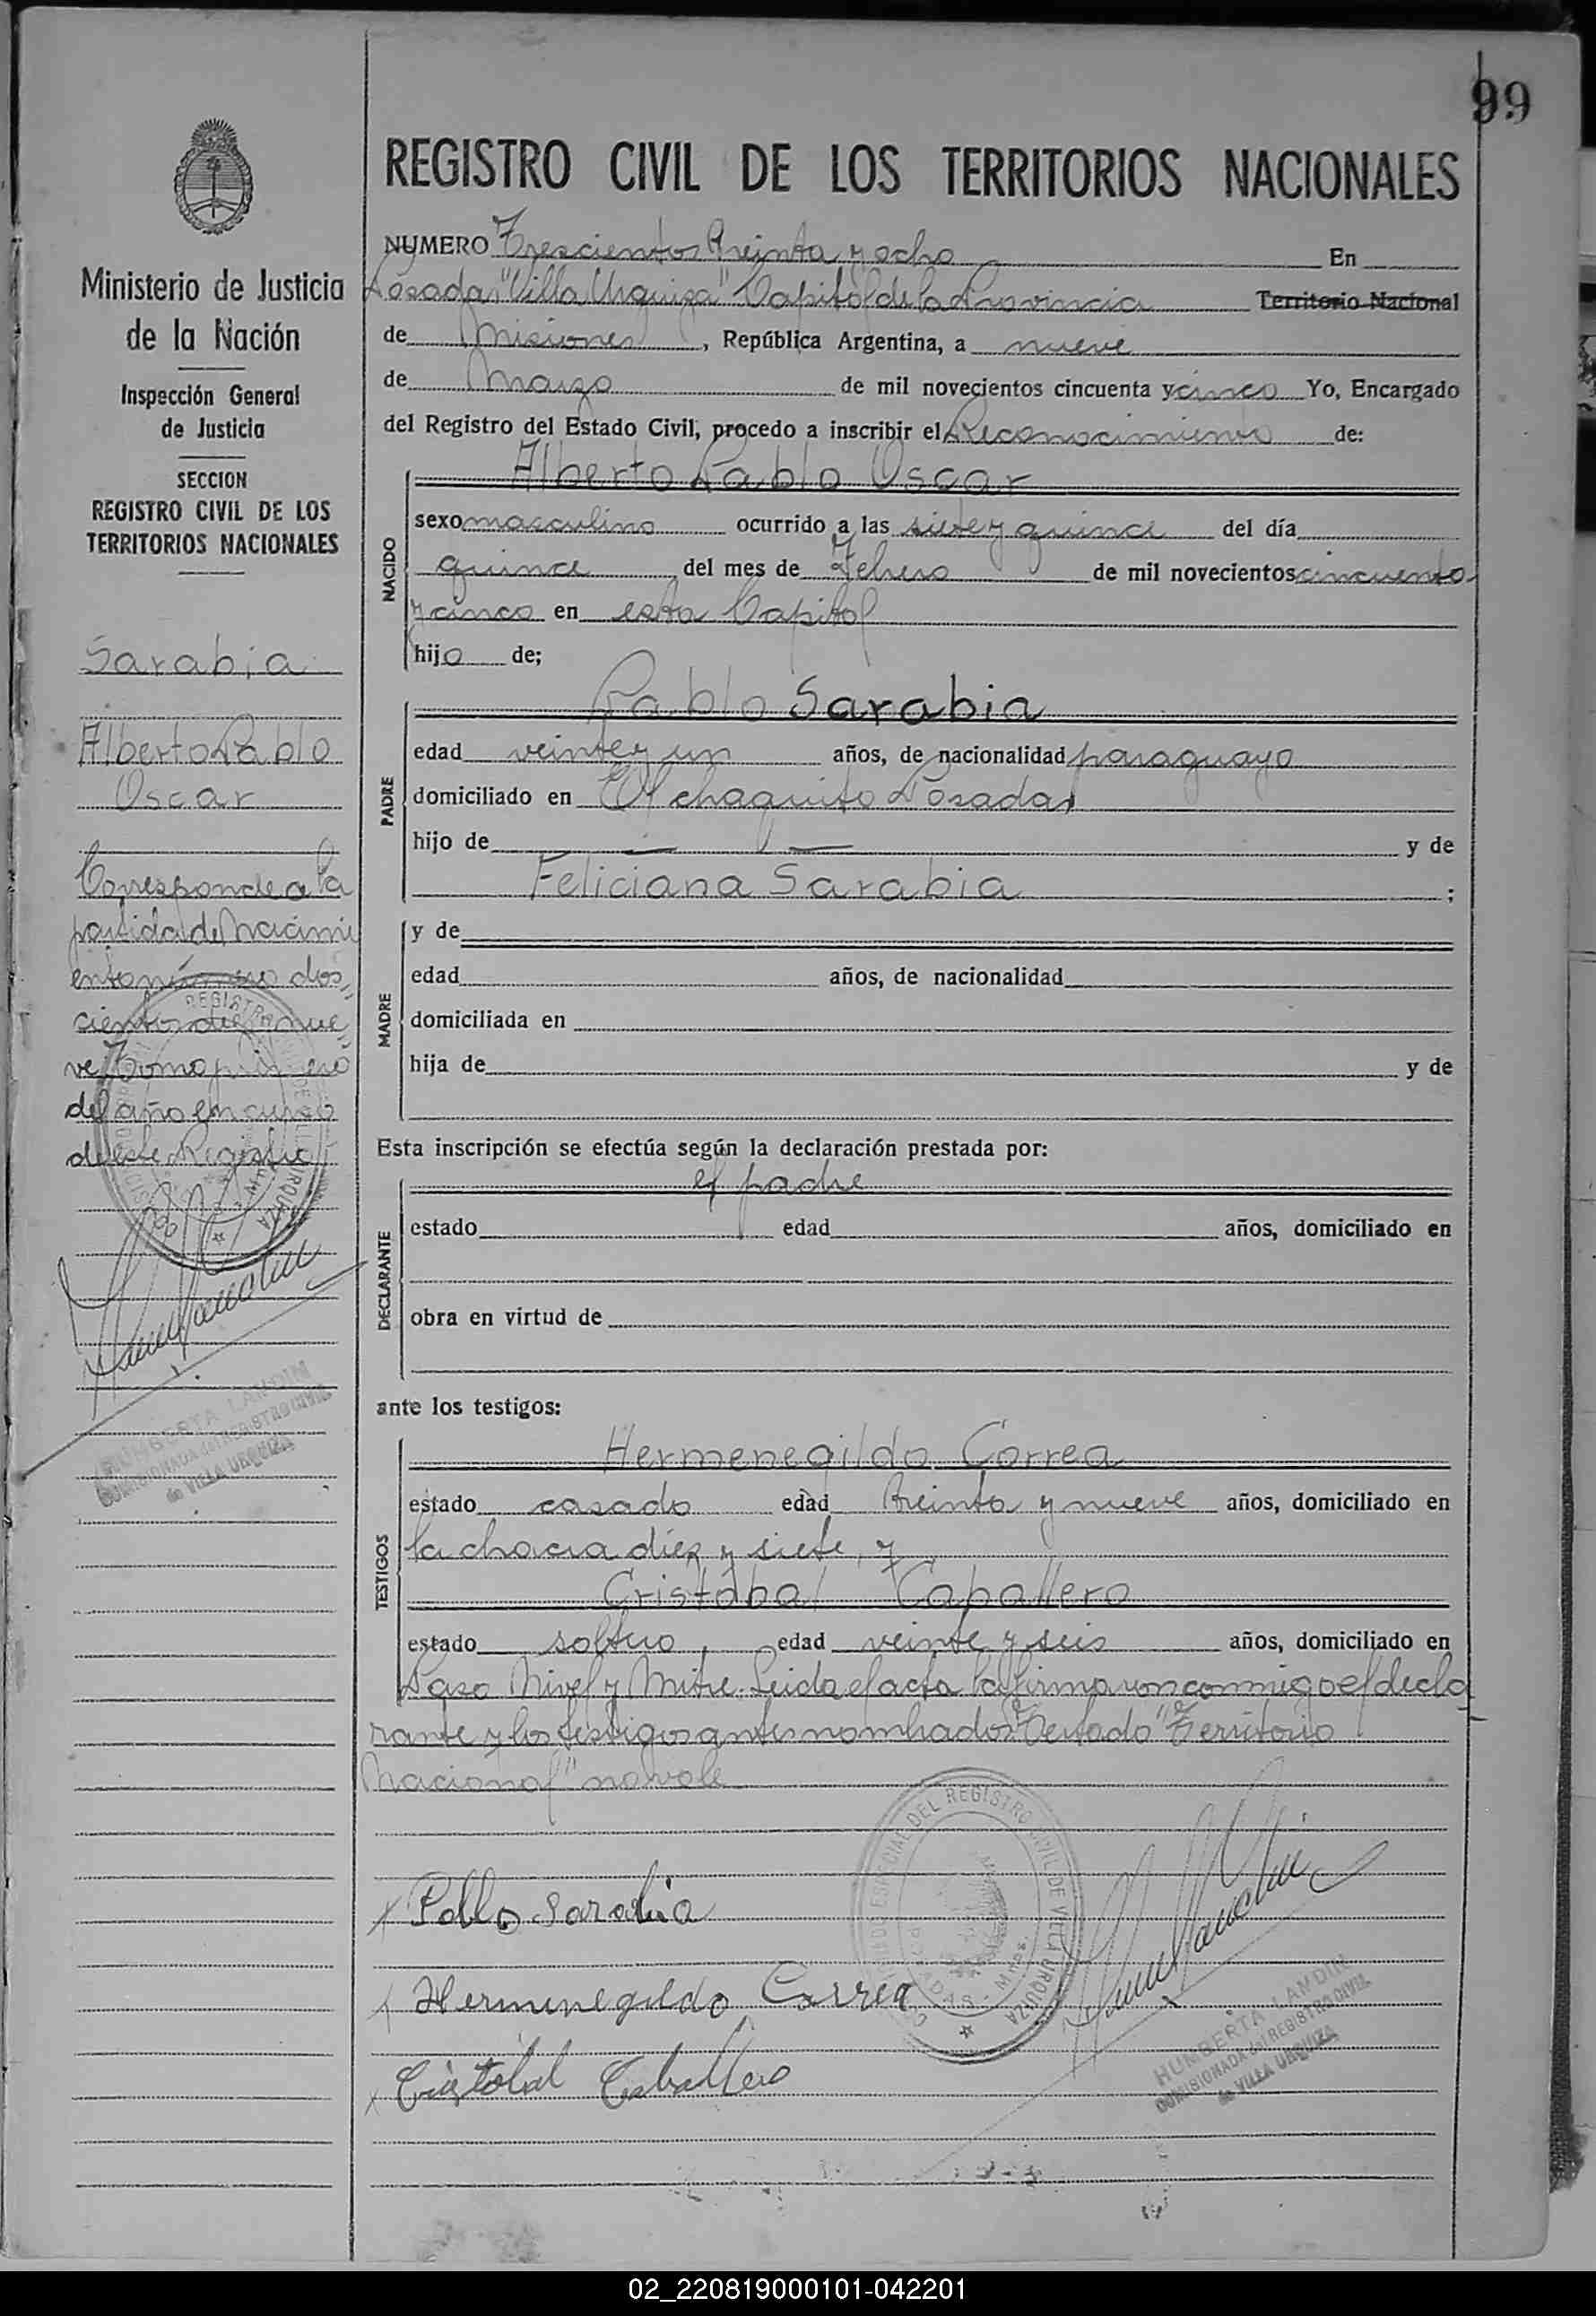 99
REGISTRO CIVIL DE LOS TERRITORIOS NACIONALES
NUMERO Trescientos Treinta y ocho En
Posadas "Villa Urquiza" Capital de la Provincia Territorio Nacional
de Misiones, República Argentina, a nueve
de Marzo de mil novecientos cincuenta y cinco Yo, Encargado
del Registro del Estado Civil, procedo a inscribir el Reconocimiento de:
NACIDO
Alberto Pablo Oscar
sexo masculino ocurrido a las siete y quince del día
quince del mes de Febrero de mil novecientos cincuenta
y cinco en esta Capital
hijo de;
PADRE
Pablo Sarabia
edad veinte y un años, de nacionalidad paraguayo
domiciliado en El chaquito Posadas
hijo de — — y de
Feliciana Sarabia ;
MADRE
y de
edad años, de nacionalidad
domiciliada en
hija de y de
Esta inscripción se efectúa según la declaración prestada por:
DECLARANTE
el padre
estado edad años, domiciliado en
obra en virtud de
ante los testigos:
TESTIGOS
Hermenegildo Correa
estado casado edad Treinta y nueve años, domiciliado en
la chacra diez y siete, y
Cristóbal Caballero
estado soltero, edad veinte y seis años, domiciliado en
Paso Nivel y Mitre. Leida el acta la firmaron conmigo el decla
rante y los testigos antes nombrados Testado "Territorio
Nacional" no vale
Pablo Sarabia
Hermenegildo Correa
Cristobal Caballero
COMISIONADO ESPECIAL DEL REGISTRO CIVIL DE VILLA URQUIZA
POSADAS - Mnes.
HUMBERTA LANDIN
COMISIONADA del REGISTRO CIVIL
de VILLA URQUIZA
Ministerio de Justicia
de la Nación
Inspección General
de Justicia
SECCION
REGISTRO CIVIL DE LOS
TERRITORIOS NACIONALES
Sarabia
Alberto Pablo
Oscar
Corresponde a la
partida de Nacimi
ento número dos,,
cientos nue,,
ve Tomo primero
del año en curso
de este Registro
HUMBERTA LANDIN
COMISIONADA del REGISTRO CIVIL
de VILLA URQUIZA
02_220819000101-042201